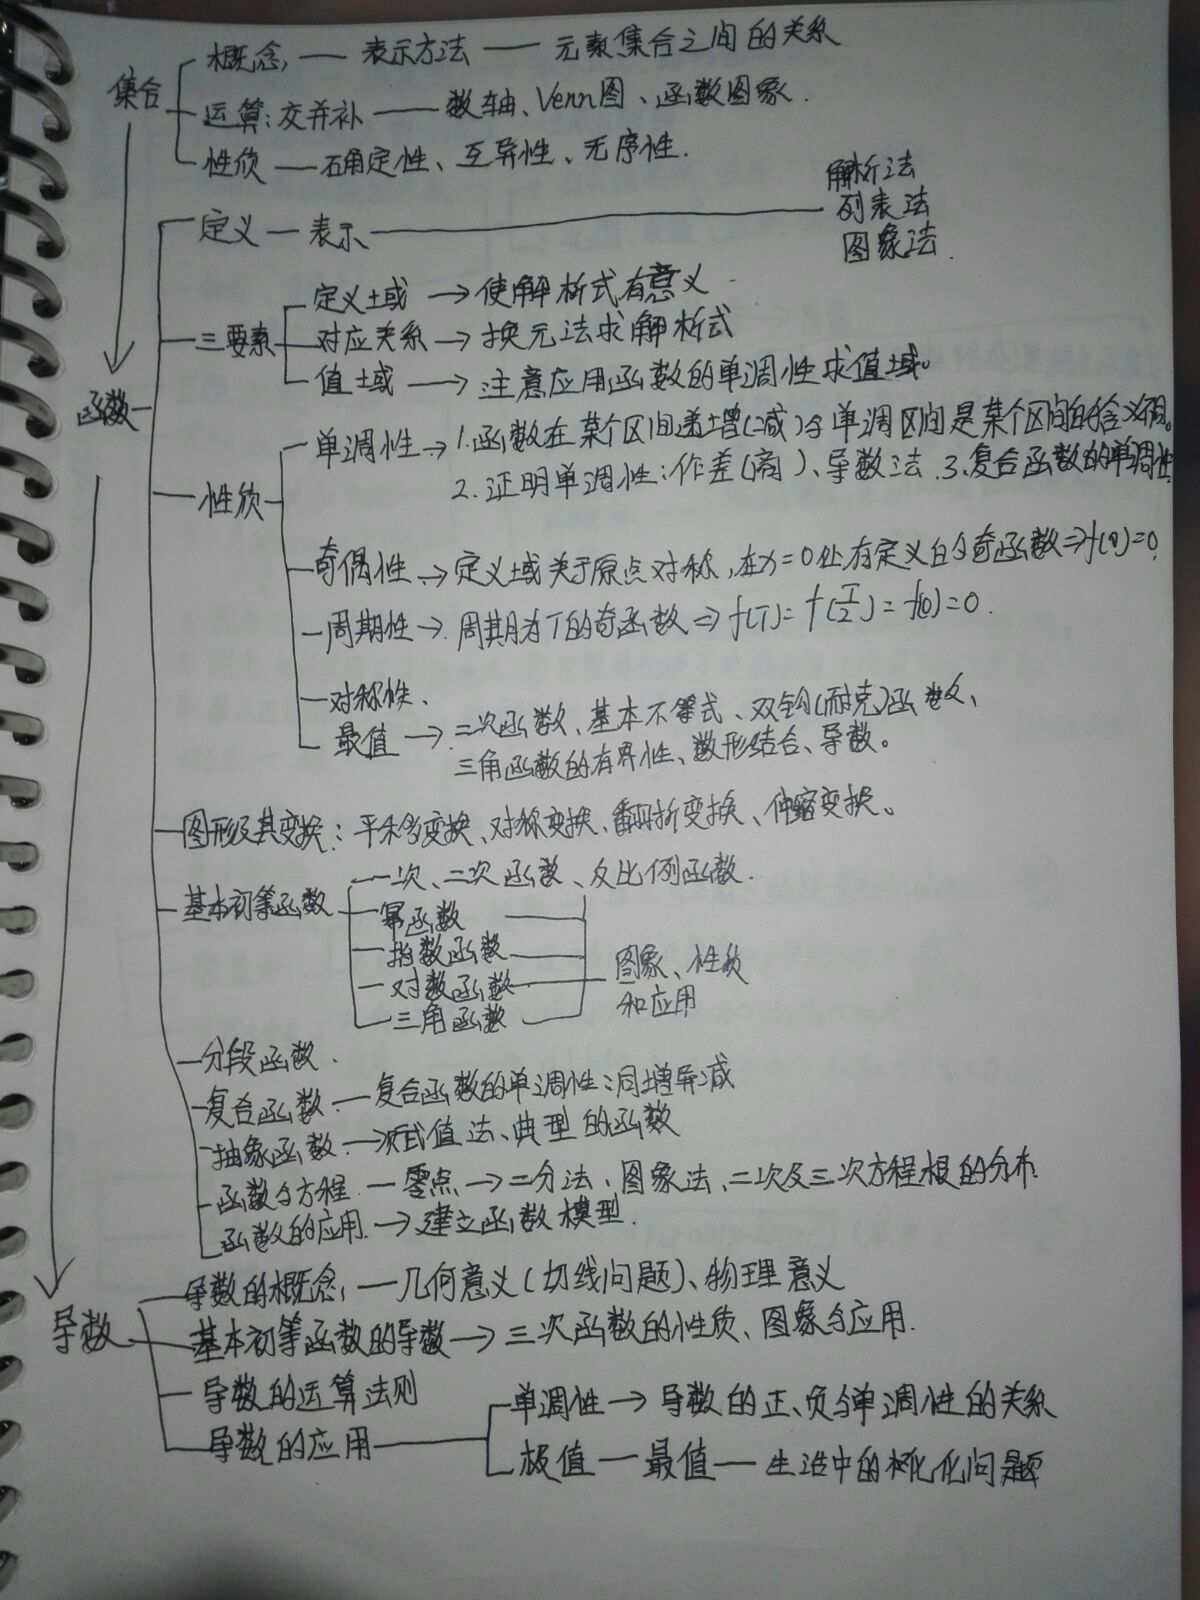 集合
概念 — 表示方法 — 元素集合之间的关系
运算:交并补 — 数轴、Venn图、函数图象.
性质 — 确定性、互异性、无序性.
函数
定义 — 表示
解析法
列表法
图象法.
三要素
定义域 → 使解析式有意义.
对应关系 → 换元法求解析式
值域 → 注意应用函数的单调性求值域。
性质
单调性 → 1.函数在某个区间递增(减)与单调区间是某个区间的含义不同。
2.证明单调性:作差(商)、导数法.3.复合函数的单调性
奇偶性 → 定义域关于原点对称,在x=0处有定义的奇函数⇒f(0)=0.
周期性 → 周期为T的奇函数⇒f(T)=f(T/2)=f(0)=0.
对称性.
最值 → 二次函数、基本不等式、双钩(耐克)函数、
三角函数的有界性、数形结合、导数。
图形及其变换:平移变换、对称变换、翻折变换、伸缩变换。
基本初等函数
一次、二次函数、反比例函数.
幂函数
指数函数
对数函数
三角函数
图象、性质
和应用
分段函数.
复合函数 — 复合函数的单调性:同增异减
抽象函数 — 赋值法、典型的函数
函数与方程 — 零点 → 二分法、图象法、二次及三次方程根的分布
函数的应用 → 建立函数模型.
导数
导数的概念 — 几何意义(切线问题)、物理意义
基本初等函数的导数 → 三次函数的性质、图象与应用.
导数的运算法则
导数的应用
单调性 → 导数的正、负与单调性的关系
极值 — 最值 — 生活中的优化问题